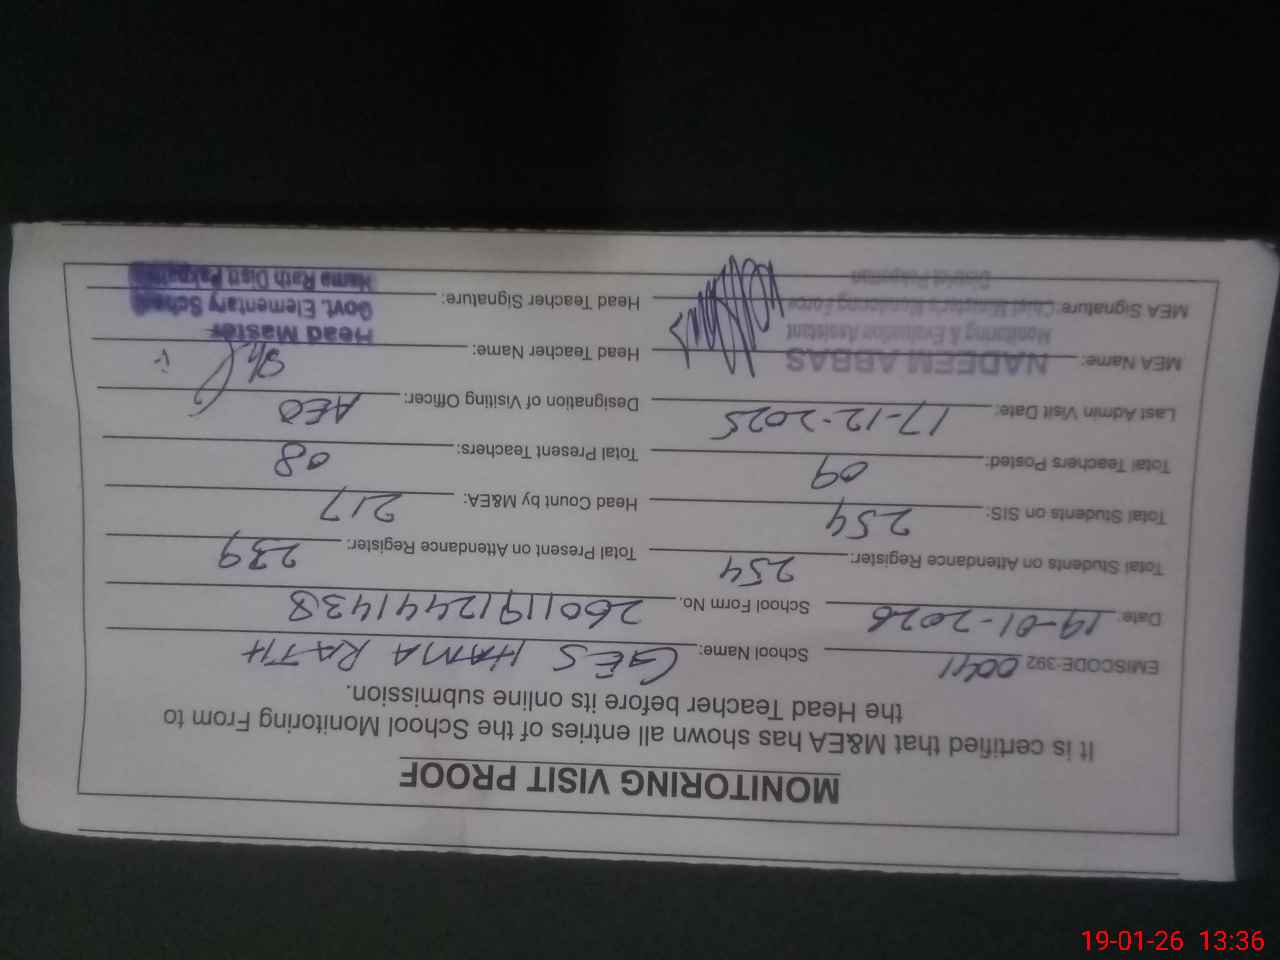 MONITORING VISIT PROOF
It is certified that M&EA has shown all entries of the School Monitoring From to
the Head Teacher before its online submission.
EMISCODE:392 0041 School Name: GES HAMA RATH
Date: 19-01-2026 School Form No. 260119124414 38
Total Students on Attendance Register: 254 Total Present on Attendance Register: 239
Total Students on SIS: 254 Head Count by M&EA: 217
Total Teachers Posted: 09 Total Present Teachers: 08
Last Admin Visit Date: 17-12-2025 Designation of Visiting Officer: AEO
MEA Name: NADEEM ABBAS Head Teacher Name:
Monitoring & Evaluation Assistant Head Master
MEA Signature: Chief Minister's Monitoring Force Head Teacher Signature: Govt. Elementary School
District Pakpattan Hama Rath Distt Pakpattan
19-01-26 13:36